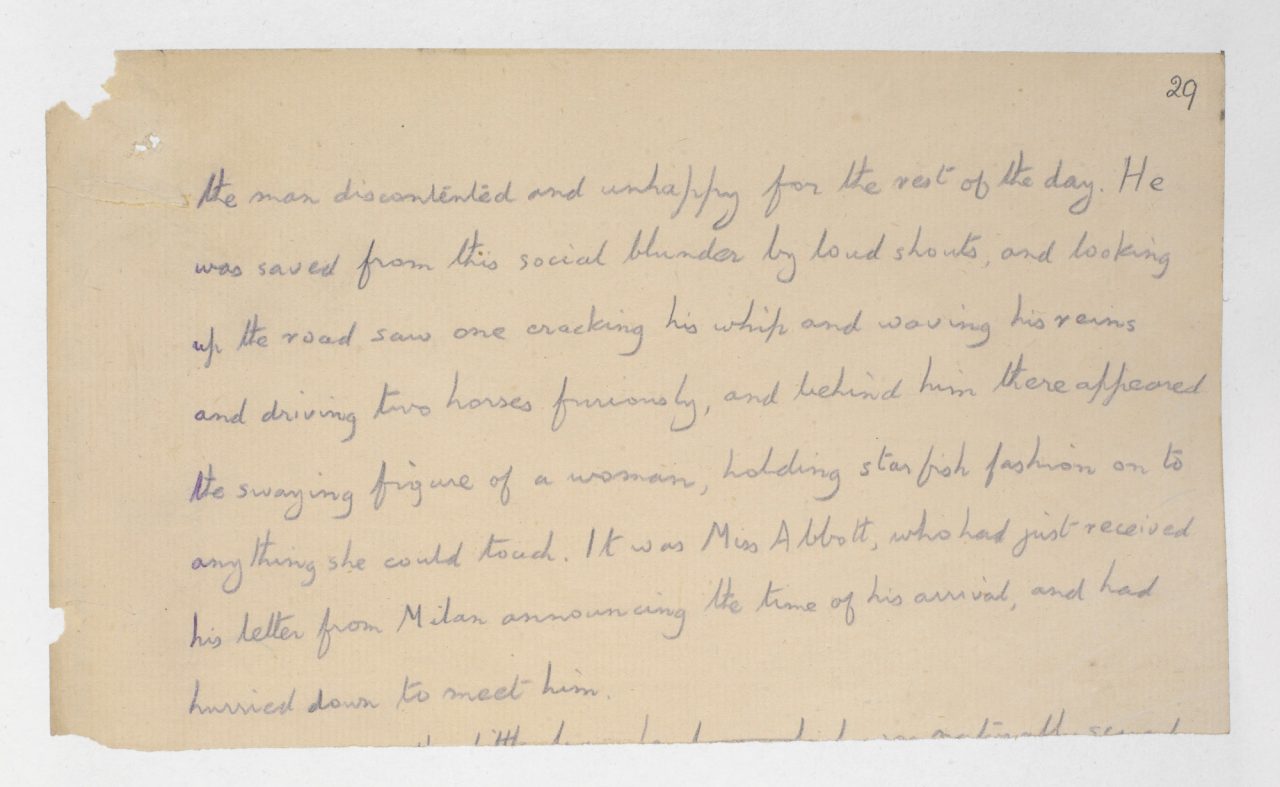 29
the man discontented and unhappy for the rest of the day. He
was saved from this social blunder by loud shouts, and looking
up the road saw one cracking his whip and waving his reins
and driving two horses furiously, and behind him there appeared
the swaying figure of a woman, holding star fish fashion on to
anything she could touch. It was Miss Abbott, who had just received
his letter from Milan announcing the time of his arrival, and had
hurried down to meet him.